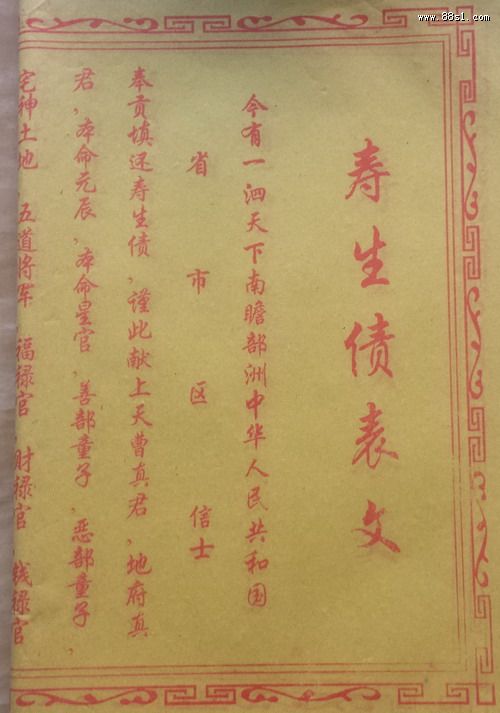 www.88sl.com
寿生债表文
今有一泗天下南瞻部洲中华人民共和国
省 市 区 信士
奉贡填还寿生债，谨此献上天曹真君，地府真
君，本命元辰，本命星官，善部童子，恶部童子，
宅神土地 五道将军 福禄官 财禄官 钱禄官